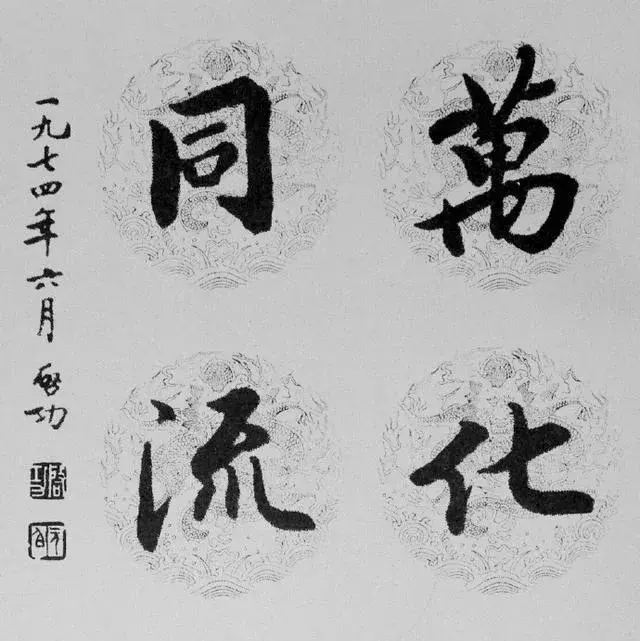 萬化
同流
一九七四年六月 啟功